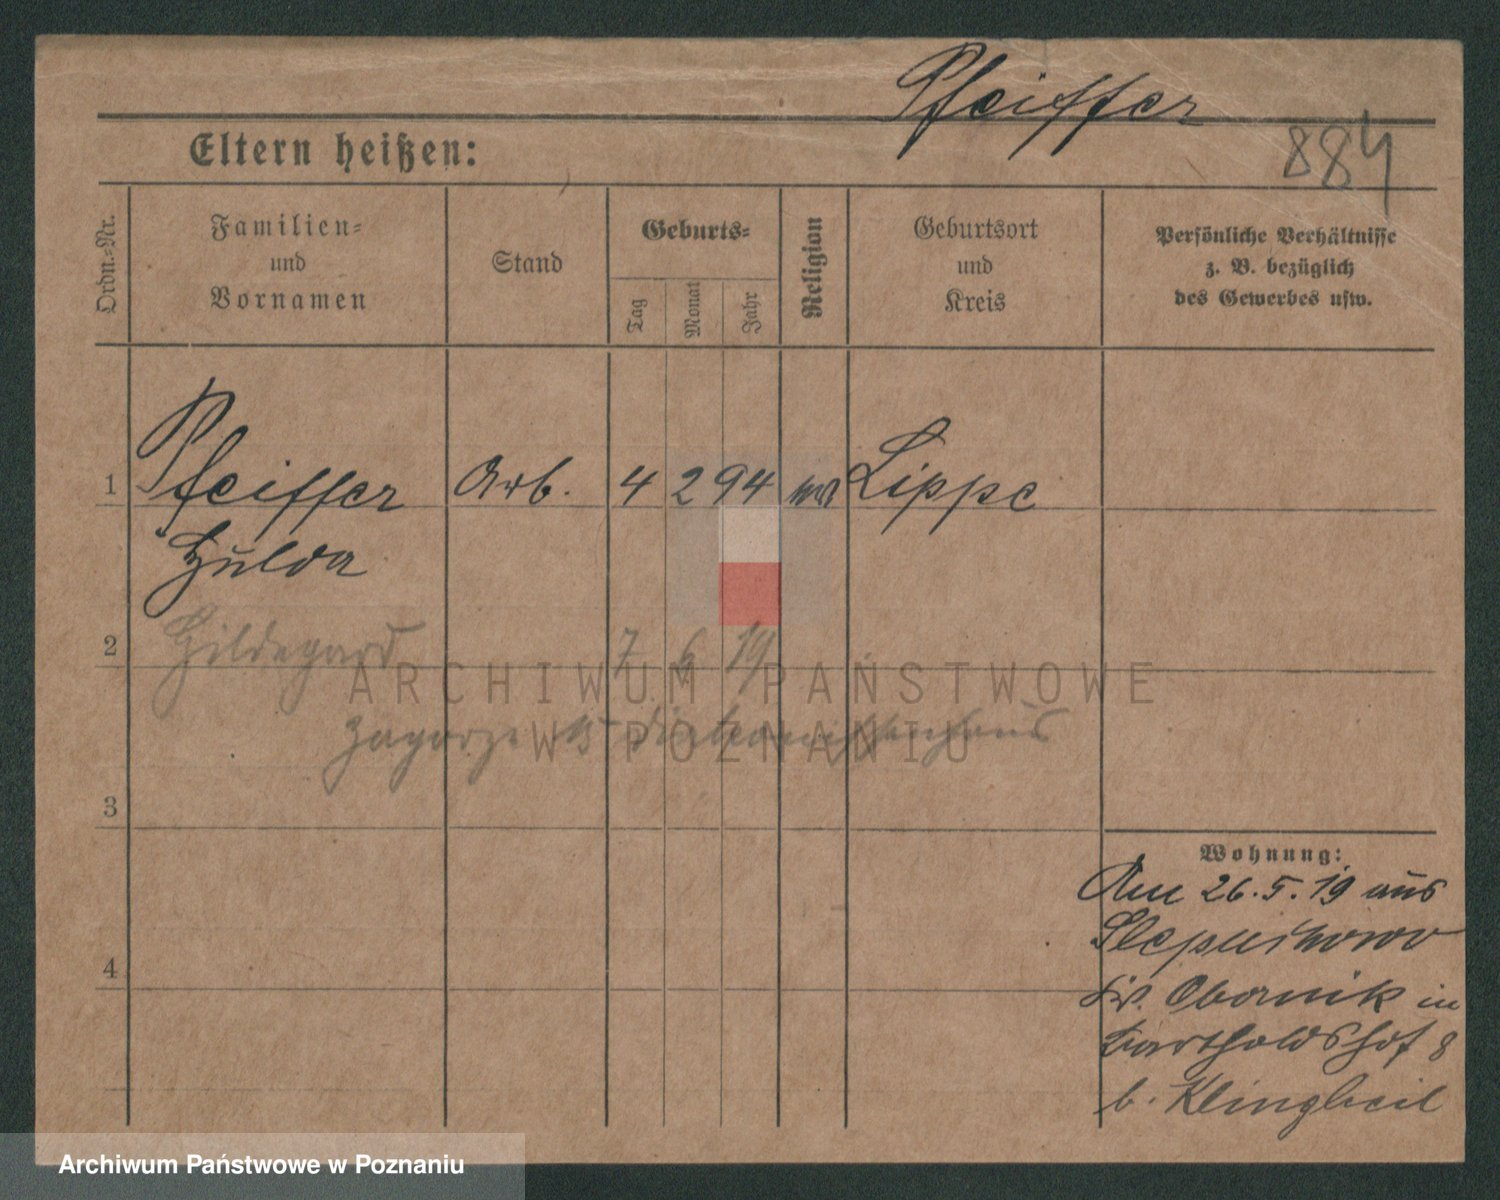 Pfeiffer
884
Eltern heißen:
Ordn.-Nr.
Familien-
und
Vornamen
Stand
Geburts-
Tag
Monat
Jahr
Religion
Geburtsort
und
Kreis
Persönliche Verhältnisse
z. B. bezüglich
des Gewerbes usw.
1 Pfeiffer Arb. 4 2 94 Lippe
Hulda
2 Hildegard 7 6 19
ARCHIWUM PAŃSTWOWE
W POZNANIU
Zagorze 15 Diakonissenhaus
3
Wohnung:
Am 26.5.19 aus
Slepuchowo
Kr. Obornik in
Bartholdshof 8
b. Klingbeil
4
Archiwum Państwowe w Poznaniu